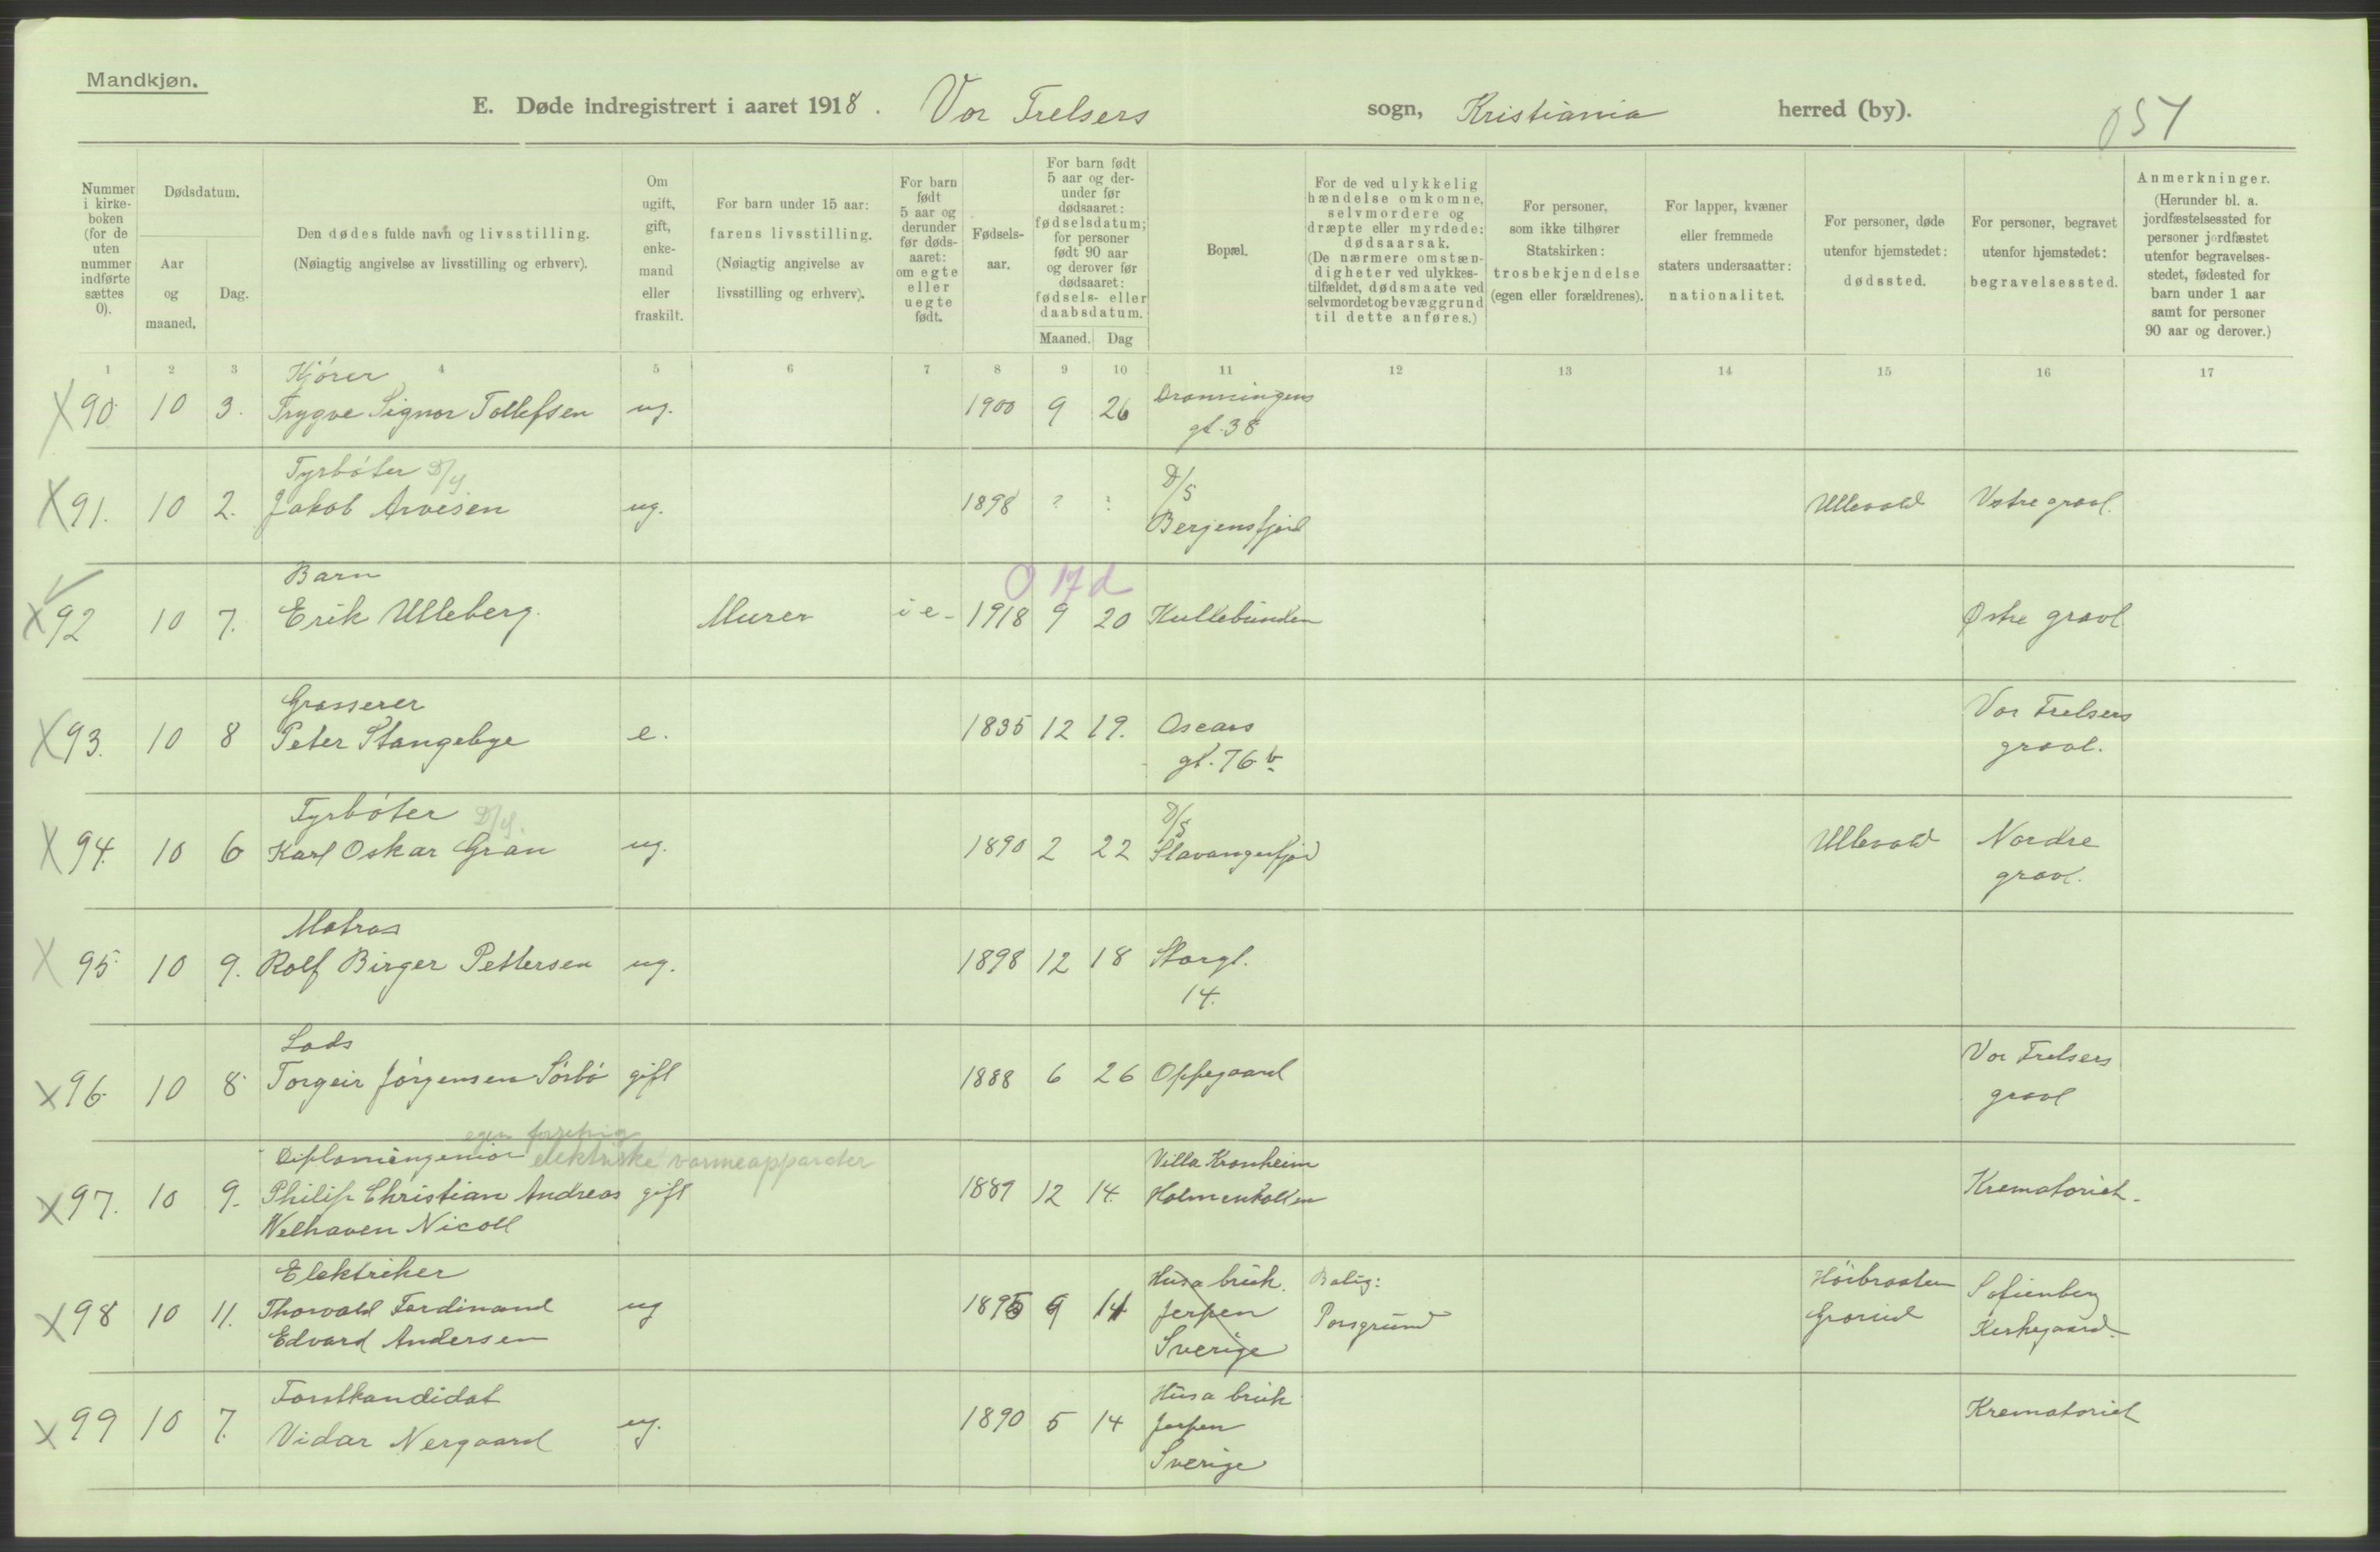 Mandkjøn.
E. Døde indregistrert i aaret 1918. Vor Frelsers sogn, Kristiania herred (by).
Nummer i kirke-boken (for de uten nummer indførte sættes 0).
Dødsdatum.
Aar og maaned.
Dag.
Den dødes fulde navn og livsstilling.
(Nøiagtig angivelse av livsstilling og erhverv).
Om ugift, gift, enke-mand eller fraskilt.
For barn under 15 aar: farens livsstilling.
(Nøiagtig angivelse av livsstilling og erhverv).
For barn født 5 aar og derunder før døds-aaret: om egte eller uegte født.
Fødsels-aar.
For barn født 5 aar og der-under før dødsaaret: fødselsdatum; for personer født 90 aar og derover før dødsaaret: fødsels- eller daabsdatum.
Maaned. Dag
Bopæl.
For de ved ulykkelig hændelse omkomne, selvmordere og dræpte eller myrdede: dødsaarsak.
(De nærmere omstæn-digheter ved ulykkes-tilfældet, dødsmaate ved selvmordet og bevæggrund til dette anføres.)
For personer, som ikke tilhører Statskirken: trosbekjendelse (egen eller forældrenes).
For lapper, kvæner eller fremmede staters undersaatter: nationalitet.
For personer, døde utenfor hjemstedet: dødssted.
For personer, begravet utenfor hjemstedet: begravelsessted.
Anmerkninger.
(Herunder bl. a. jordfæstelsessted for personer jordfæstet utenfor begravelses-stedet, fødested for barn under 1 aar samt for personer 90 aar og derover.)
1 2 3 4 5 6 7 8 9 10 11 12 13 14 15 16 17
Kjörer
X 90 10 3. Trygve Signor Tollefsen ug. 1900 9 26 Dronningens
gt. 38
Fyrböter D/S
X 91. 10 2. Jakob Arvesen ug. 1898 ? ? D/S
Bergensfjord Ullevold Vstre gravl.
Barn 0 17 d
X 92 10 7. Erik Ulleberg. Murer i e - 1918 9 20 Kullebunden Østre gravl.
Grosserer
X 93. 10 8 Peter Stangebye e. 1835 12 19. Oscars
gt. 76 b Vor Frelsers
gravl.
Fyrböter D/S.
X 94. 10 6 Karl Oskar Gran ug. 1890 2 22 D/S
Stavangerfjord Ullevold Nordre
gravl.
Matros
X 95 10 9. Rolf Birger Pettersen ug. 1898 12 18 Storgt.
14.
Lods
X 96. 10 8 Torgeir Jörgensen Sörbö gift 1888 6 26 Oppegaard Vor Frelsers
gravl
egen forretnig
Diplomingeniör elektriske varmeapparater
X 97. 10 9. Philip Christian Andreas gift 1889 12 14. Villa Kronheim
Welhaven Nicoll Holmenkollen Krematoriet.
Elektriker
X 98 10 11. Thorvald Ferdinand ug 1895 9 14 Husa bruk.
Edvard Andersen Jerpen
Sverige Bolig:
Porsgrund Höibraaten
Grorud Sofienberg
Kirkegaard.
Forstkandidat
X 99 10 7. Vidar Nergaard ug. 1890 5 14 Husa bruk
Jerpen
Sverige Krematoriet